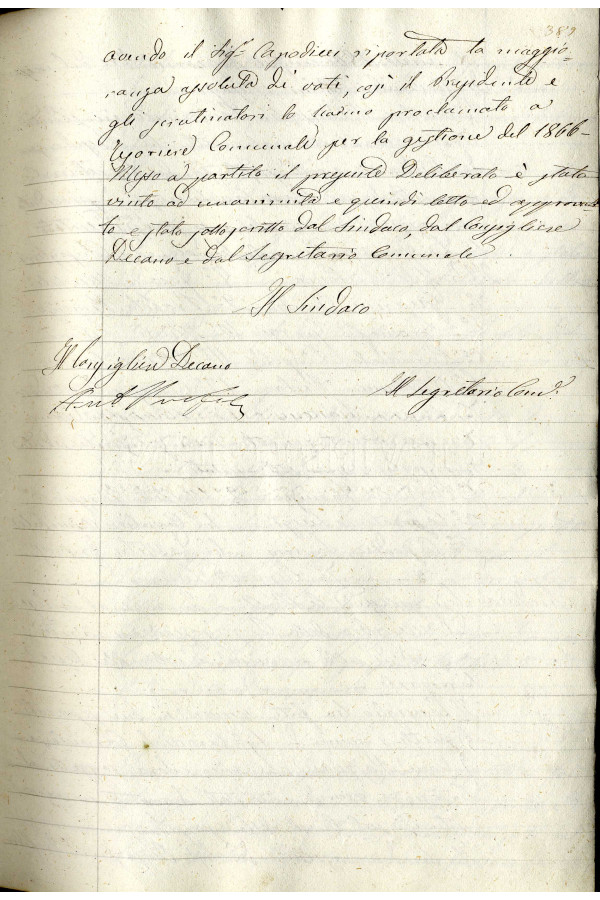 389
avendo il Sig.r Capodieci riportata la maggio-
ranza assoluta di voti, così il Presidente e
gli scrutinatori lo hanno proclamato a
Tesoriere Comunale per la gestione del 1866-
Messo a partito il presente Deliberato è stato
vinto ad unanimità e quindi letto ed approva-
to e stato sottoscritto dal Sindaco, dal Consigliere
Decano e dal Segretario Comunale.
Il Sindaco
Il Consigliere Decano
Il Segretario Com.le